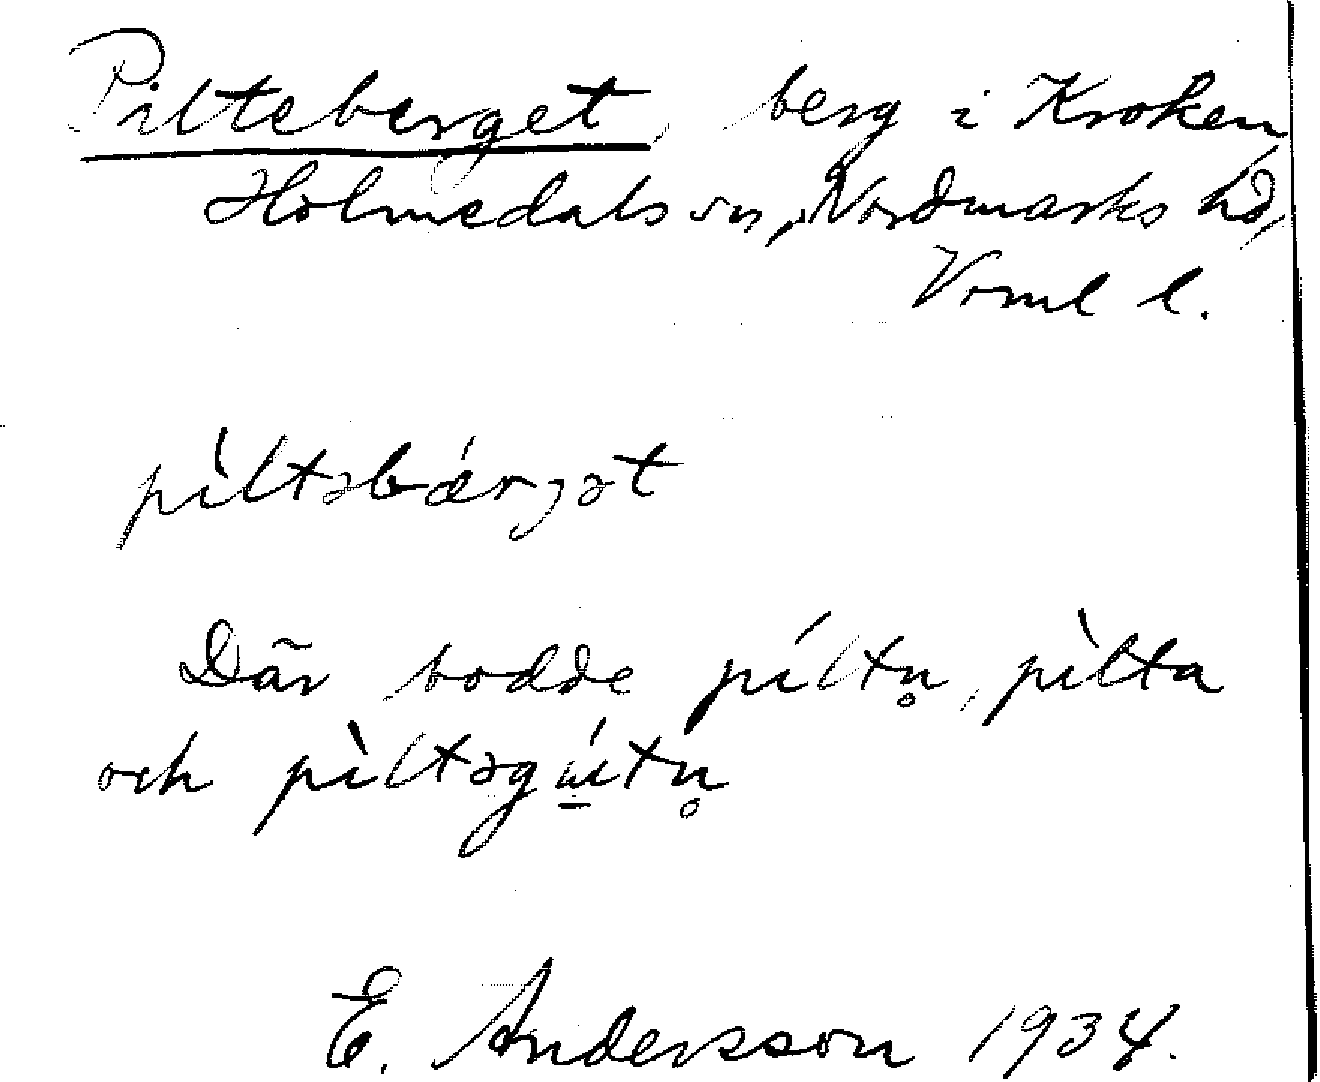 Pilteberget, berg i Kroken
Holmedals sn, Nordmarks hd,
Vrml l.
pìltəbǽrjət
Där bodde píltn̥, pìlta
och pìltəgútn̥
E. Andersson 1934.